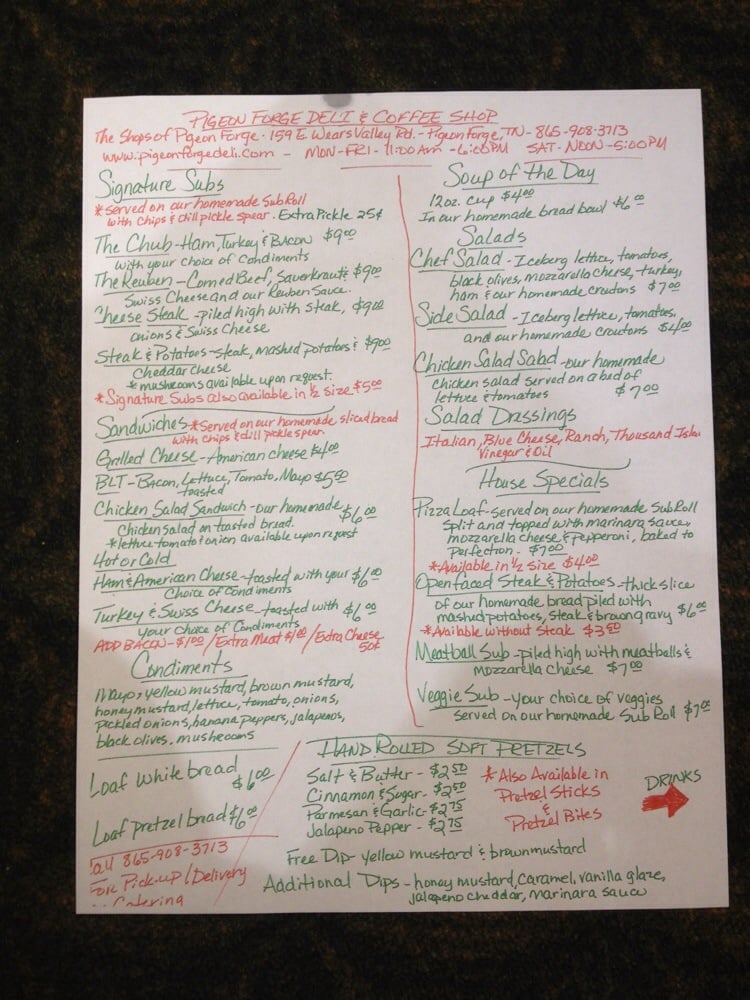 PIGEON FORGE DELI & COFFEE SHOP
The Shops of Pigeon Forge - 159 E. Wears Valley Rd. - Pigeon Forge, TN - 865-908-3713
www.pigeonforgedeli.com - MON-FRI - 11:00 Am - 6:00PM SAT - NOON - 5:00 PM
Signature Subs
*Served on our homemade Sub Roll
with Chips & dill pickle spear. Extra Pickle 25¢
The Chub - Ham, Turkey & BACON $9.00
with your choice of Condiments
The Reuben - Corned Beef, Sauerkraut & $9.00
Swiss Cheese and our Reuben Sauce.
Cheese Steak - piled high with steak, $9.00
onions & Swiss Cheese
Steak & Potatoes - steak, mashed potatoes & $9.00
Cheddar Cheese
*mushrooms available upon request.
*Signature Subs also available in 1/2 size $5.00
Sandwiches *Served on our homemade sliced bread
with chips & dill pickle spear.
Grilled Cheese - American cheese $4.00
BLT - Bacon, Lettuce, Tomato, Mayo $5.50
toasted
Chicken Salad Sandwich - our homemade $6.00
Chicken salad on toasted bread.
*lettuce tomato & onion available upon request
Hot or Cold
Ham & American Cheese - toasted with your $6.00
Choice of Condiments
Turkey & Swiss Cheese - toasted with $6.00
your choice of Condiments
ADD BACON - $1.00 / Extra Meat $1.00 / Extra Cheese
50¢
Condiments
Mayo, yellow mustard, brown mustard,
honey mustard, lettuce, tomato, onions,
pickled onions, banana peppers, jalapenos,
black olives, mushrooms
Loaf White bread $6.00
Loaf pretzel bread $6.00
Call 865-908-3713
For Pick-up / Delivery
Catering
Soup of the Day
12oz. Cup $4.00
In our homemade bread bowl $6.00
Salads
Chef Salad - Iceberg lettuce, tomatoes,
black olives, mozzarella cheese, turkey,
ham & our homemade croutons $7.00
Side Salad - Iceberg lettuce, tomatoes,
and our homemade croutons $4.00
Chicken Salad Salad - our homemade
chicken salad served on a bed of
lettuce & tomatoes $7.00
Salad Dressings
Italian, Blue Cheese, Ranch, Thousand Isla
Vinegar & Oil
House Specials
Pizza Loaf - served on our homemade Sub Roll
Split and topped with marinara sauce,
mozzarella cheese & pepperoni, baked to
perfection - $7.00
*Available in 1/2 size $4.00
Open faced Steak & Potatoes - thick slice
of our homemade bread piled with
mashed potatoes, steak & brown gravy $6.00
*Available without Steak $3.50
Meatball Sub - piled high with meatballs &
mozzarella cheese $7.00
Veggie Sub - your choice of veggies
served on our homemade Sub Roll $7.00
HAND ROLLED SOFT PRETZELS
Salt & Butter - $2.50
Cinnamon & Sugar - $2.50
Parmesan & Garlic - $2.75
Jalapeno Pepper - $2.75
*Also Available in
Pretzel Sticks
&
Pretzel Bites
DRINKS
Free Dip - yellow mustard & brown mustard
Additional Dips - honey mustard, Caramel, vanilla glaze,
jalapeno cheddar, marinara sauce